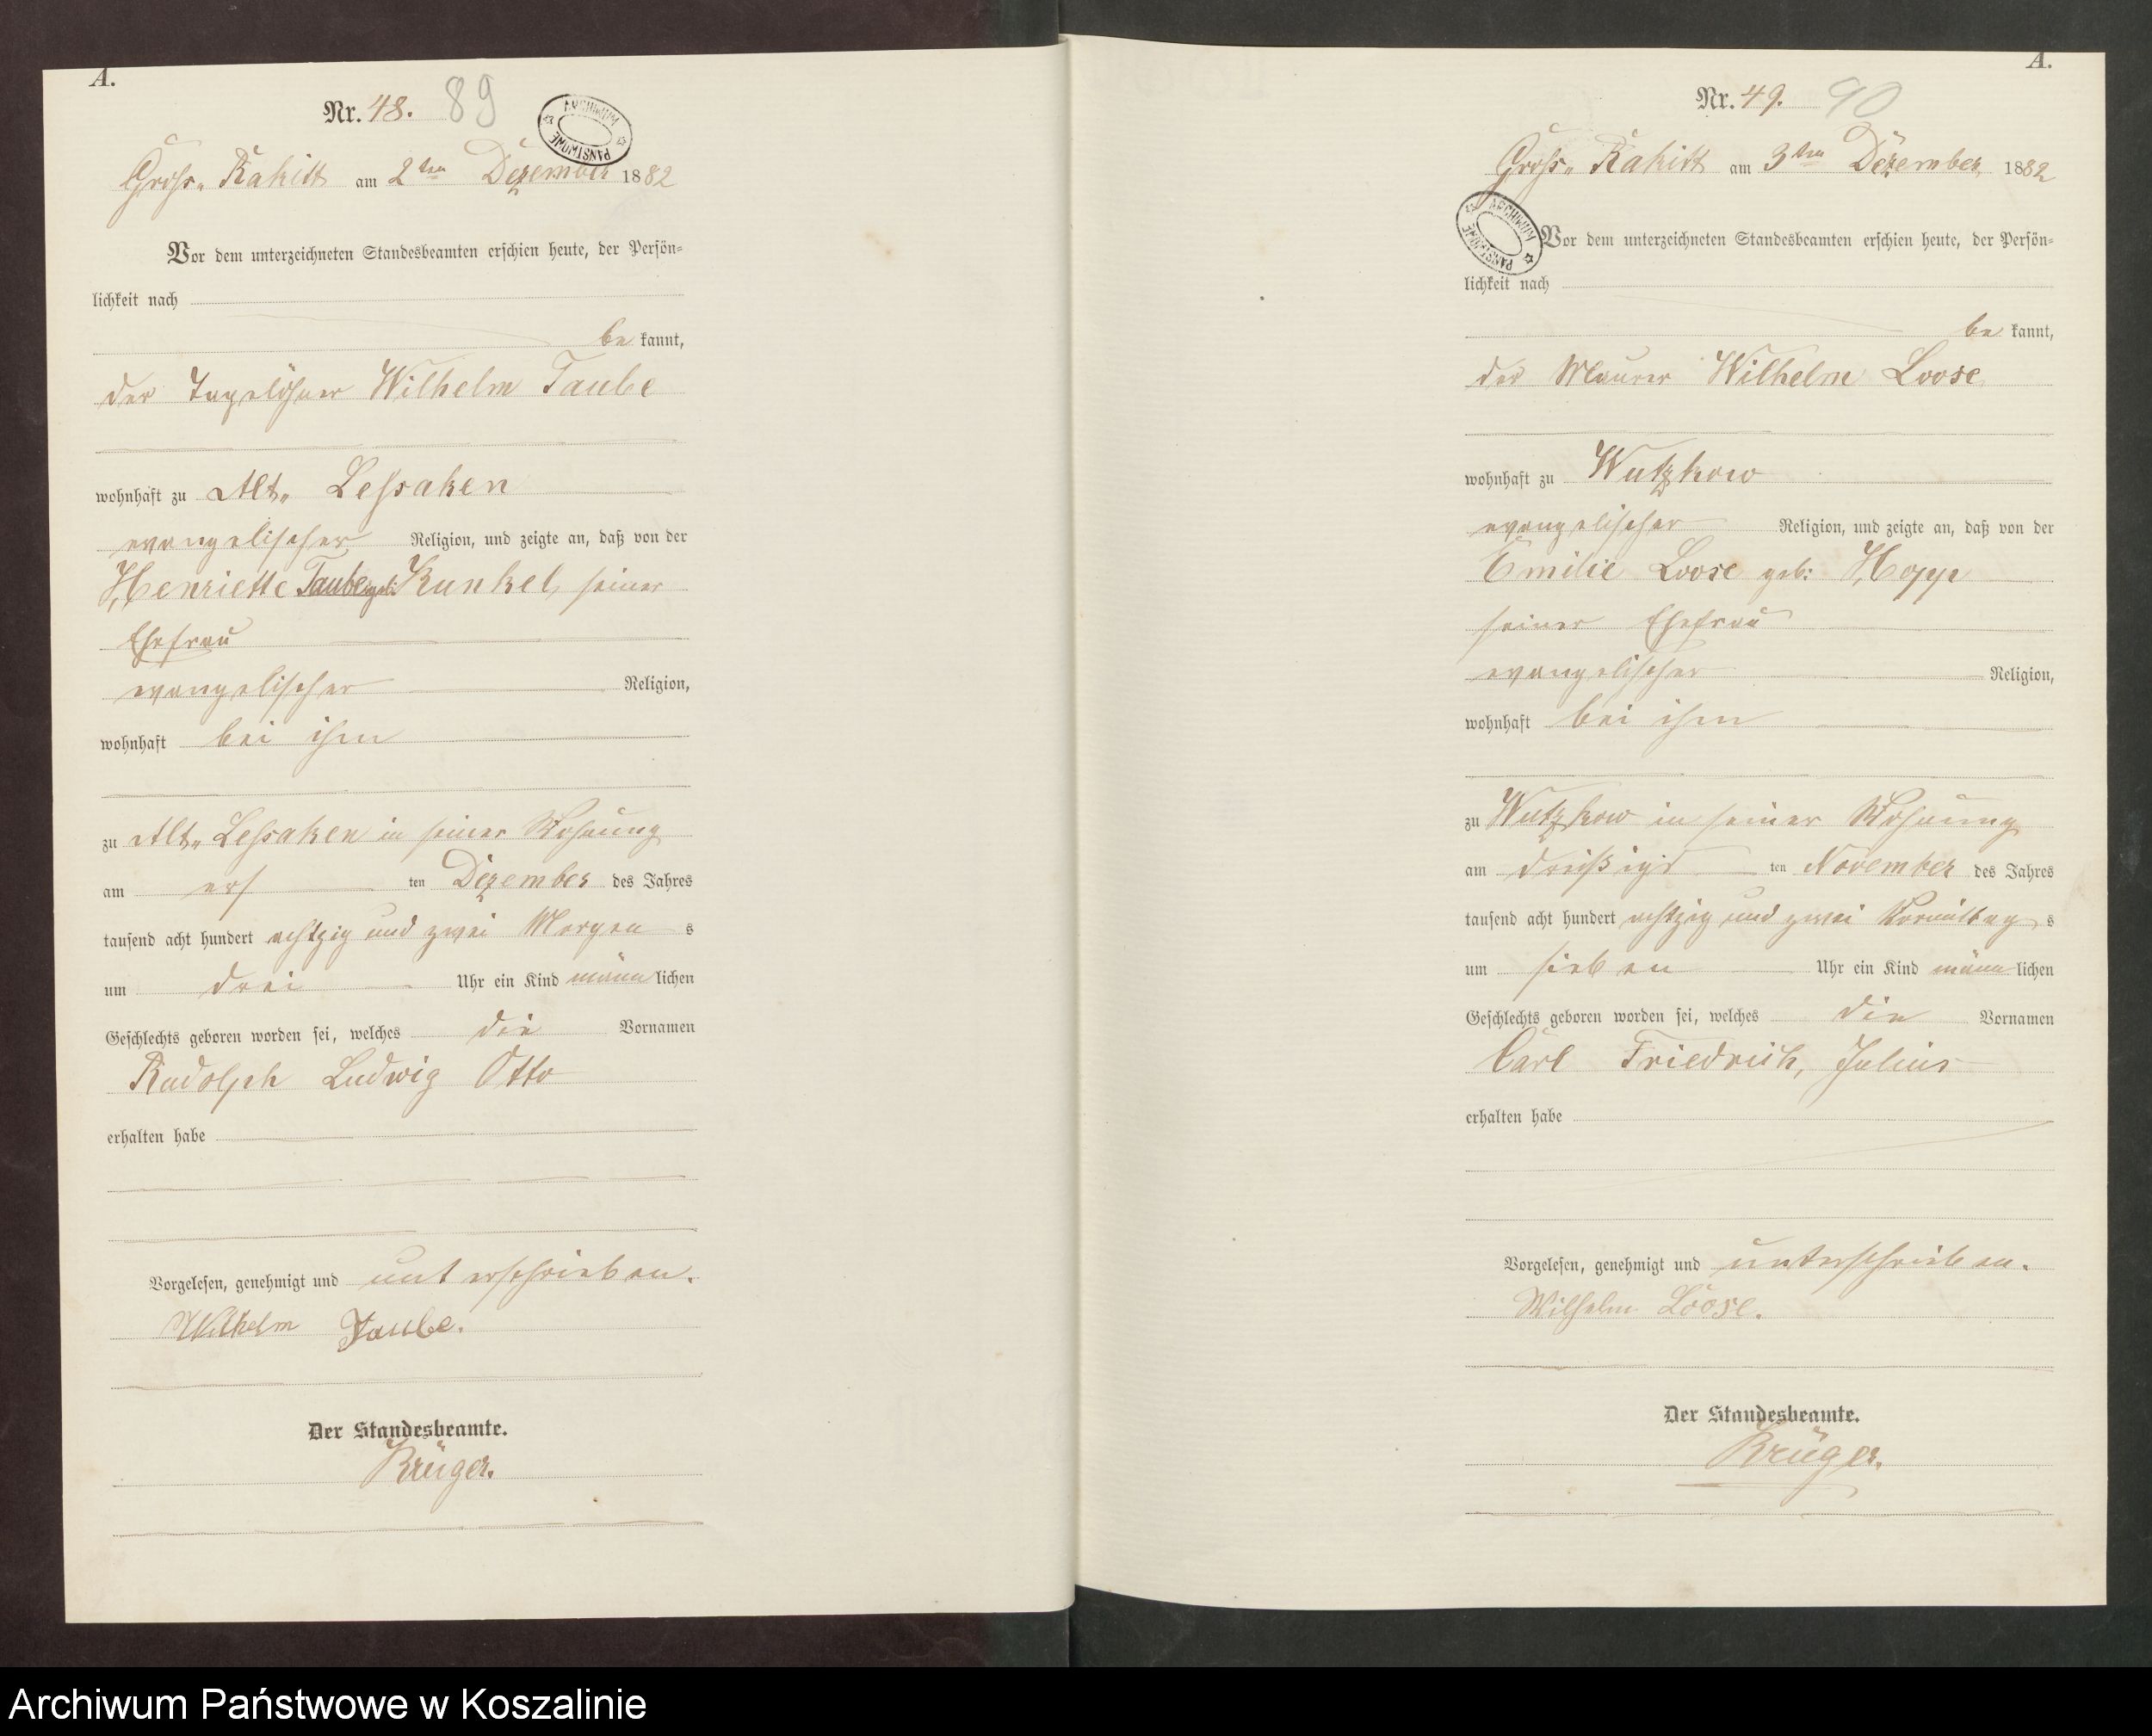 A.
Nr. 48. 89
ARCHIWUM PAŃSTWOWE
Gross-Rakitt am 2ten Dezember 1882
Vor dem unterzeichneten Standesbeamten erschien heute, der Persön-
lichkeit nach
be kannt,
der Tagelöhner Wilhelm Taube
wohnhaft zu Alt-Lessaken
evangelischer Religion, und zeigte an, daß von der
Henriette Taube geb: Kunkel, seiner
Ehefrau
evangelischer Religion,
wohnhaft bei ihm
zu Alt-Lessaken in seiner Wohnung
am ers ten Dezember des Jahres
tausend acht hundert achtzig und zwei Morgen s
um drei Uhr ein Kind männ lichen
Geschlechts geboren worden sei, welches die Vornamen
Rudolph Ludwig Otto
erhalten habe
Vorgelesen, genehmigt und unterschrieben.
Wilhelm Taube.
Der Standesbeamte.
Krüger.
A.
Nr. 49. 90
Gross-Rakitt am 3ten Dezember 1882
ARCHIWUM PAŃSTWOWE
Vor dem unterzeichneten Standesbeamten erschien heute, der Persön-
lichkeit nach
be kannt,
der Maurer Wilhelm Loose
wohnhaft zu Wutzkow
evangelischer Religion, und zeigte an, daß von der
Emilie Loose geb: Hopp
seiner Ehefrau
evangelischer Religion,
wohnhaft bei ihm
zu Wutzkow in seiner Wohnung
am dreißigs ten November des Jahres
tausend acht hundert achtzig und zwei Vormittag s
um sieben Uhr ein Kind männ lichen
Geschlechts geboren worden sei, welches die Vornamen
Carl Friedrich, Julius
erhalten habe
Vorgelesen, genehmigt und unterschrieben.
Wilhelm Loose.
Der Standesbeamte.
Krüger.
Archiwum Państwowe w Koszalinie